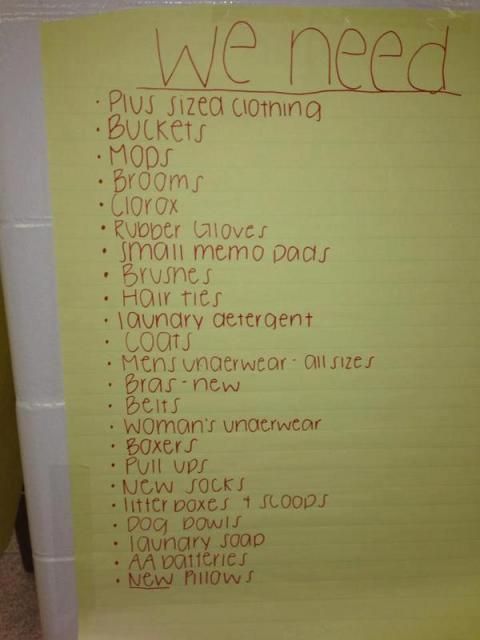 We need
• Plus sized clothing
• Buckets
• Mops
• Brooms
• Clorox
• Rubber Gloves
• small memo pads
• Brushes
• Hair ties
• laundry detergent
• Coats
• Mens underwear - all sizes
• Bras - new
• Belts
• Woman's underwear
• Boxers
• Pull ups
• New socks
• litter boxes + scoops
• Dog bowls
• laundry soap
• AA batteries
• New Pillows